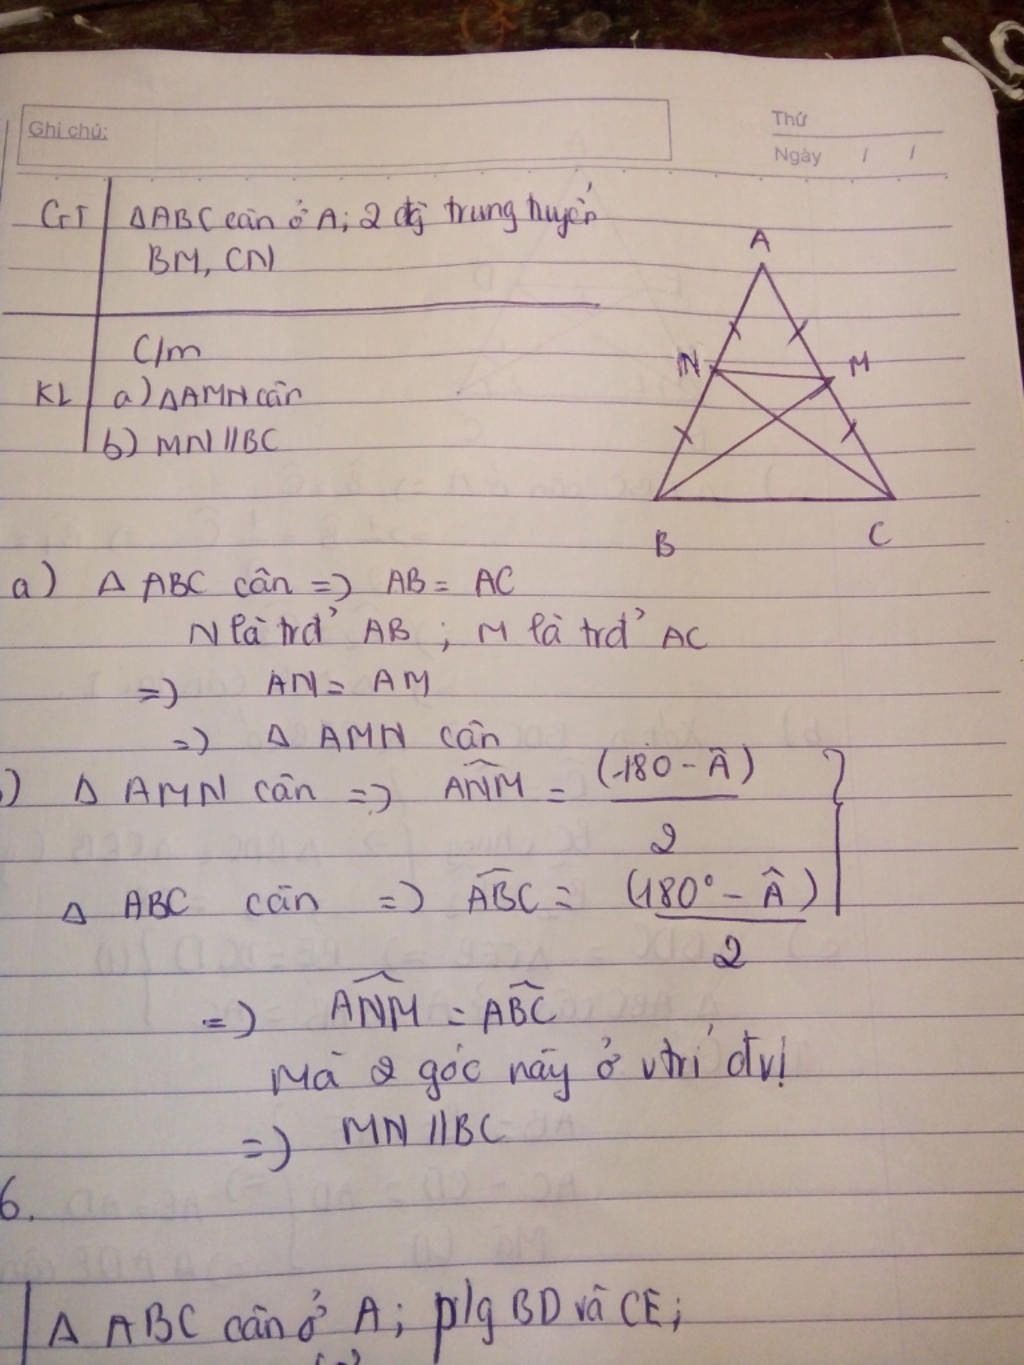 Ghi chú:
Thứ
Ngày / /
GT ΔABC cân ở A; 2 đg trung tuyến
BM, CN
C/m
KL a) ΔAMN cân
b) MN//BC
A
N M
B C
a) Δ ABC cân => AB = AC
N là trđ' AB ; M là trđ' AC
=> AN = AM
=> Δ AMN cân
) Δ AMN cân => ANM = (180 - Â)
2
Δ ABC cân => ABC = (180° - Â)
2
=> ANM = ABC
Mà 2 góc này ở vtrí đvị
=> MN//BC
6.
Δ ABC cân ở A; p/g BD và CE;